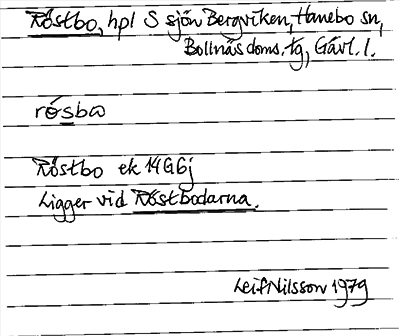 Röstbo, hpl S sjön Bergviken, Hanebo sn,
Bollnäs doms. tg, Gävl. l.
rósbω
Röstbo ek 14G6j
Ligger vid Röstbodarna.
Leif Nilsson 1979